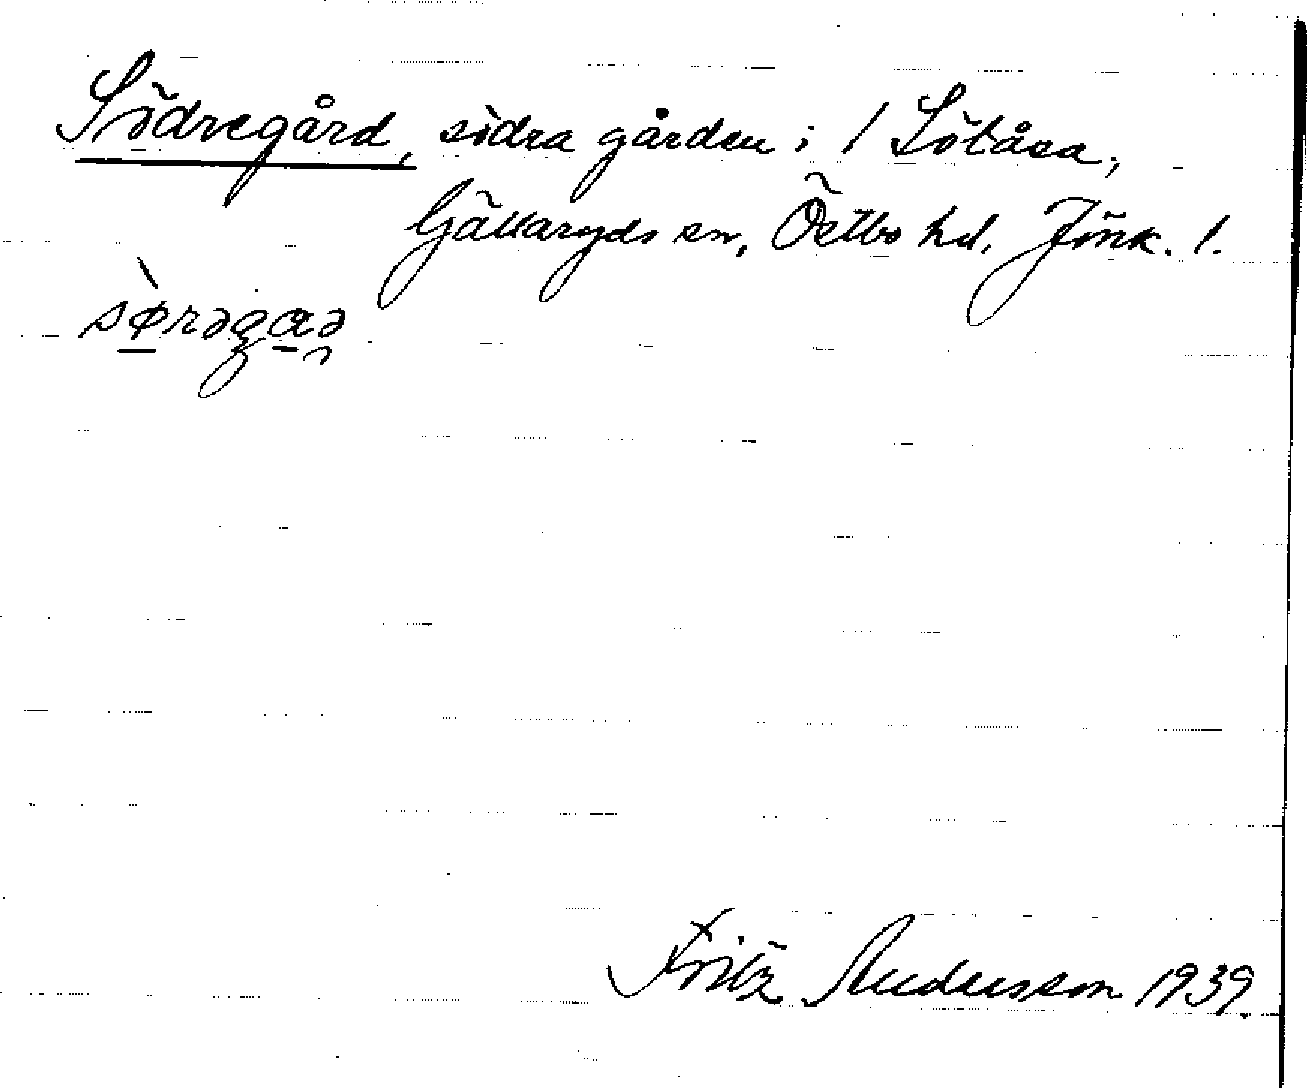 Södregård, södra gården i 1 Sötåsa,
Gällaryds sn, Östbo hd. Jönk. l.
sø̀rəgaə
Fritz Andersson 1939.